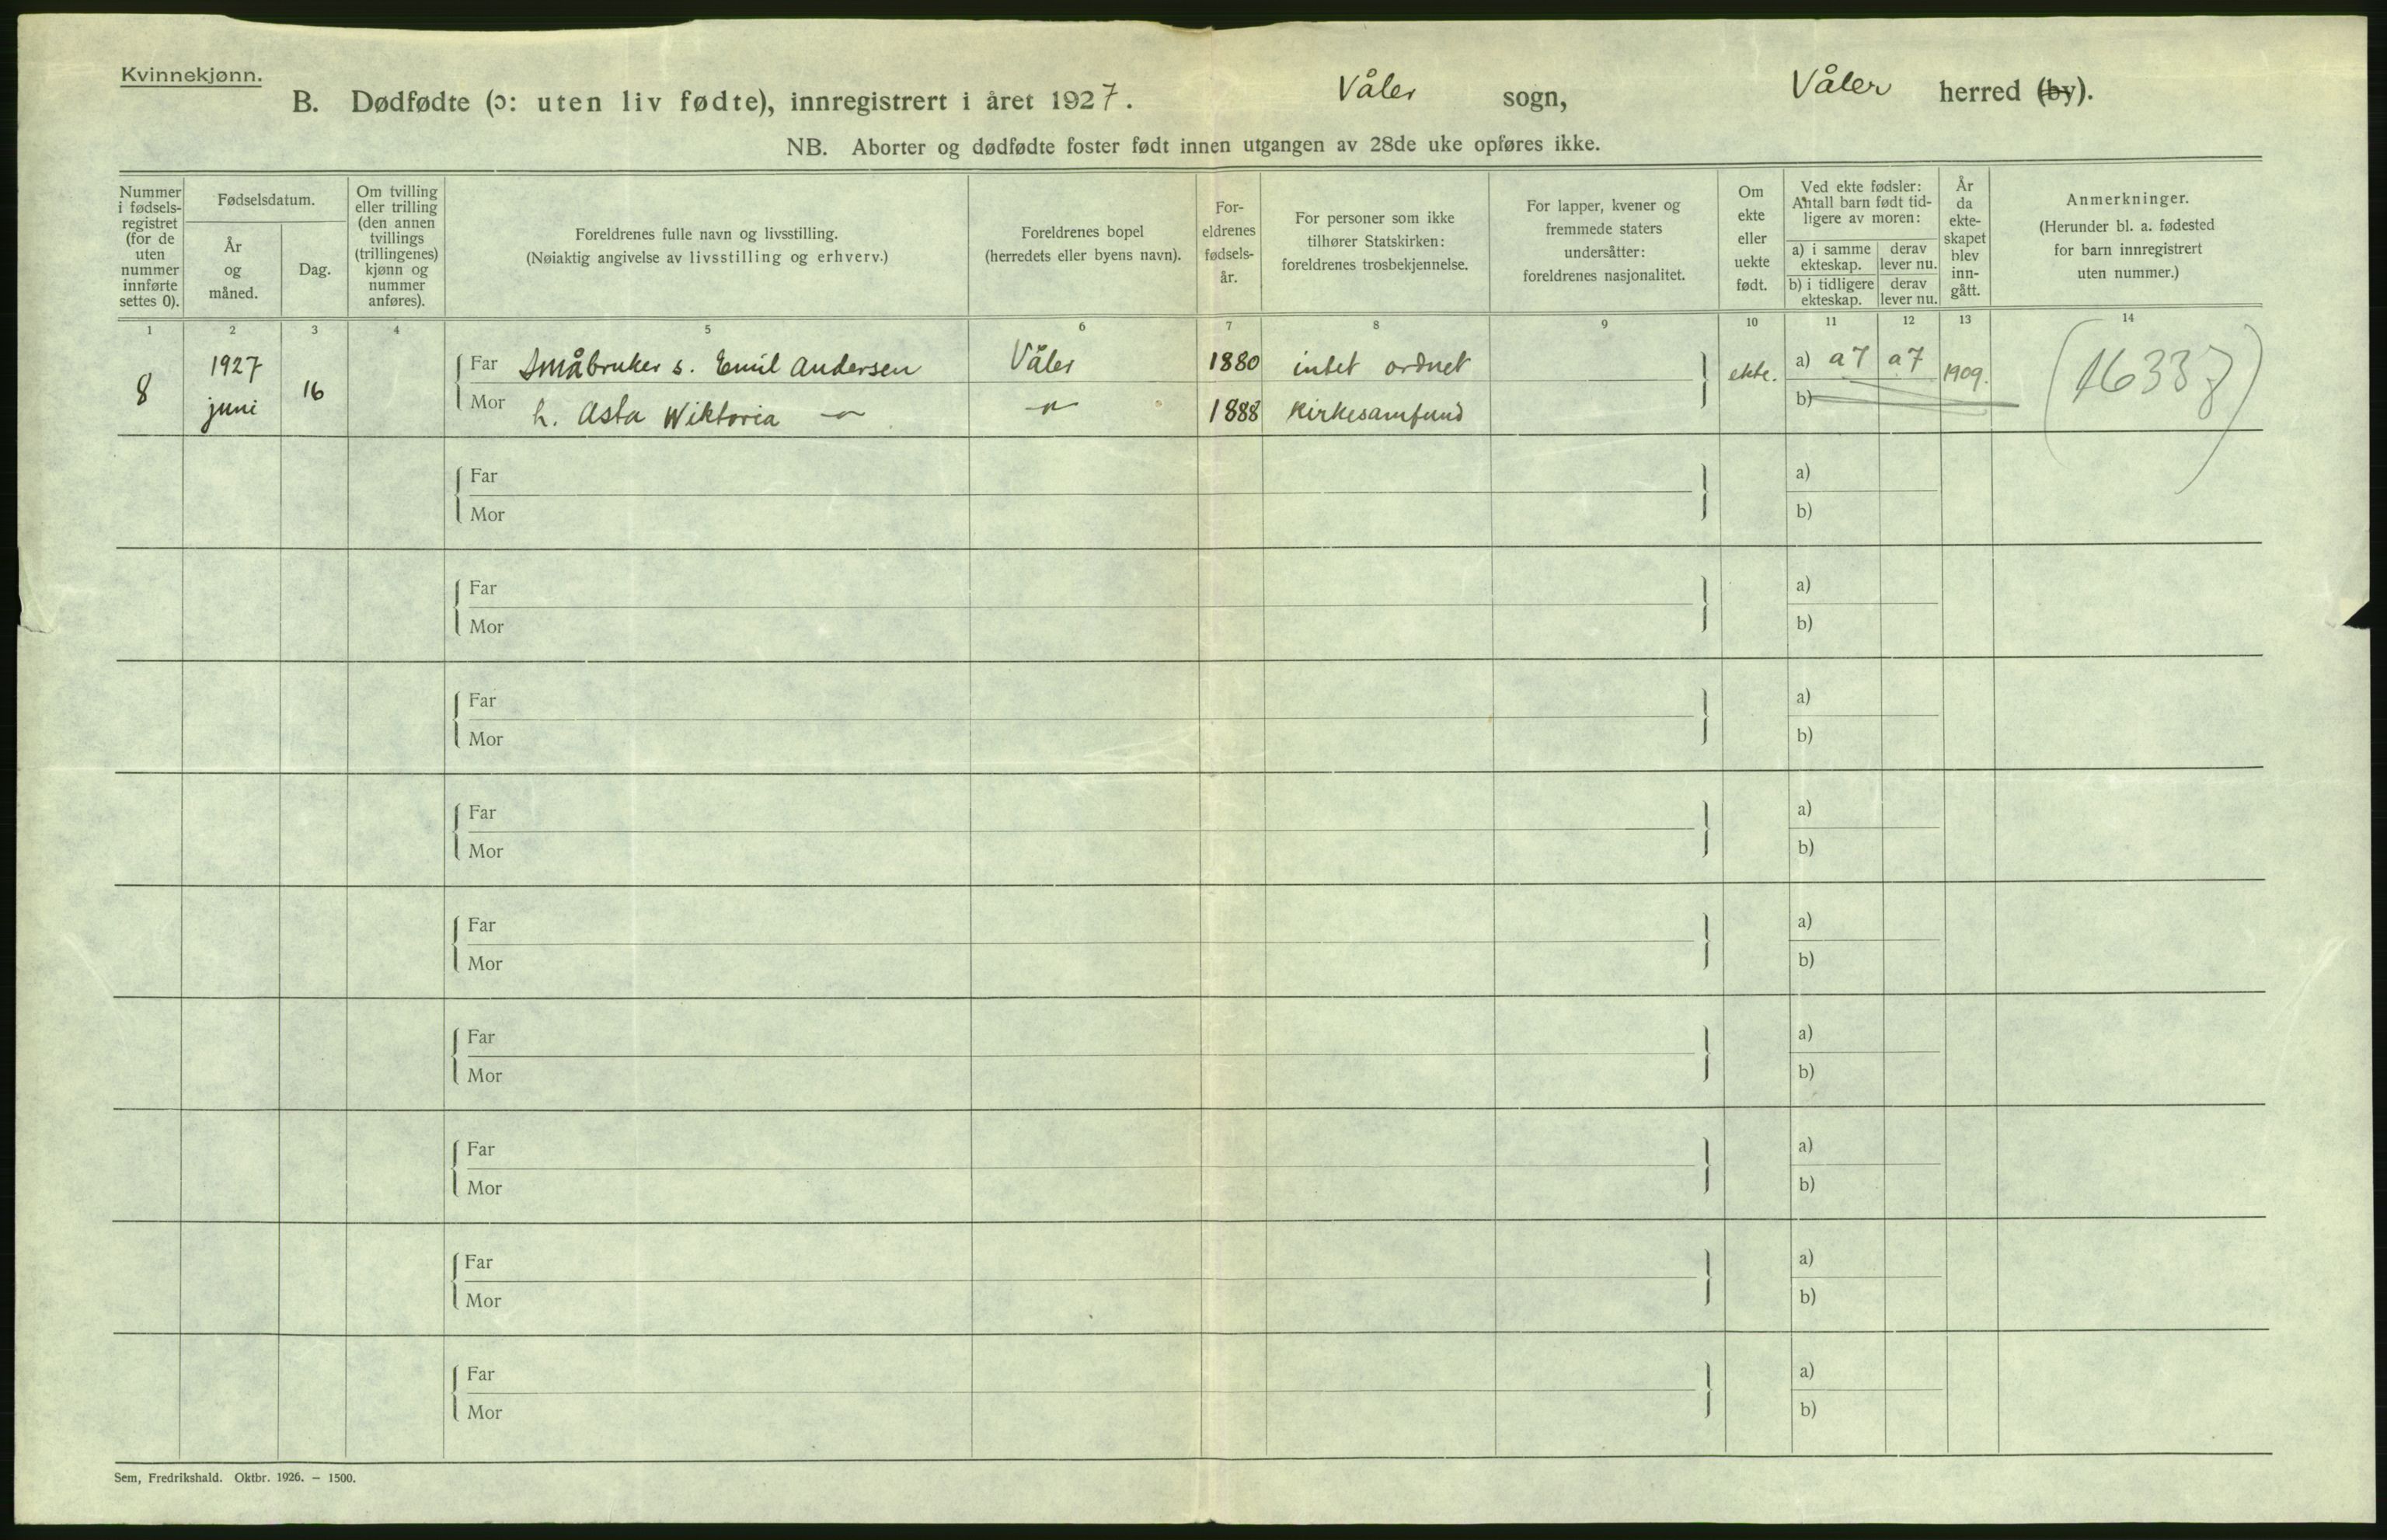 Kvinnekjønn.
B. Dødfødte (ɔ: uten liv fødte), innregistrert i året 1927. Våler sogn, Våler herred (by).
NB. Aborter og dødfødte foster født innen utgangen av 28de uke opføres ikke.
Nummer i fødsels- registret (for de uten nummer innførte settes 0).
Fødselsdatum.
År og måned.
Dag.
Om tvilling eller trilling (den annen tvillings (trillingenes) kjønn og nummer anføres).
Foreldrenes fulle navn og livsstilling.
(Nøiaktig angivelse av livsstilling og erhverv.)
Foreldrenes bopel
(herredets eller byens navn).
For- eldrenes fødsels- år.
For personer som ikke tilhører Statskirken: foreldrenes trosbekjennelse.
For lapper, kvener og fremmede staters undersåtter: foreldrenes nasjonalitet.
Om ekte eller uekte født.
Ved ekte fødsler: Antall barn født tid- ligere av moren:
a) i samme ekteskap. derav lever nu.
b) i tidligere ekteskap. derav lever nu.
År da ekte- skapet blev inn- gått.
Anmerkninger.
(Herunder bl. a. fødested for barn innregistrert uten nummer.)
1 2 3 4 5 6 7 8 9 10 11 12 13 14
8 1927 juni 16
Far Småbruker s. Emil Andersen Våler 1880 intet ordnet ekte. a) a7 a7 1909.
Mor h. Asta Wiktoria –"– –"– 1888 kirkesamfund b)
Far a)
Mor b)
Far a)
Mor b)
Far a)
Mor b)
Far a)
Mor b)
Far a)
Mor b)
Far a)
Mor b)
Far a)
Mor b)
Far a)
Mor b)
Far a)
Mor b)
Sem, Fredrikshald. Oktbr. 1926. – 1500.